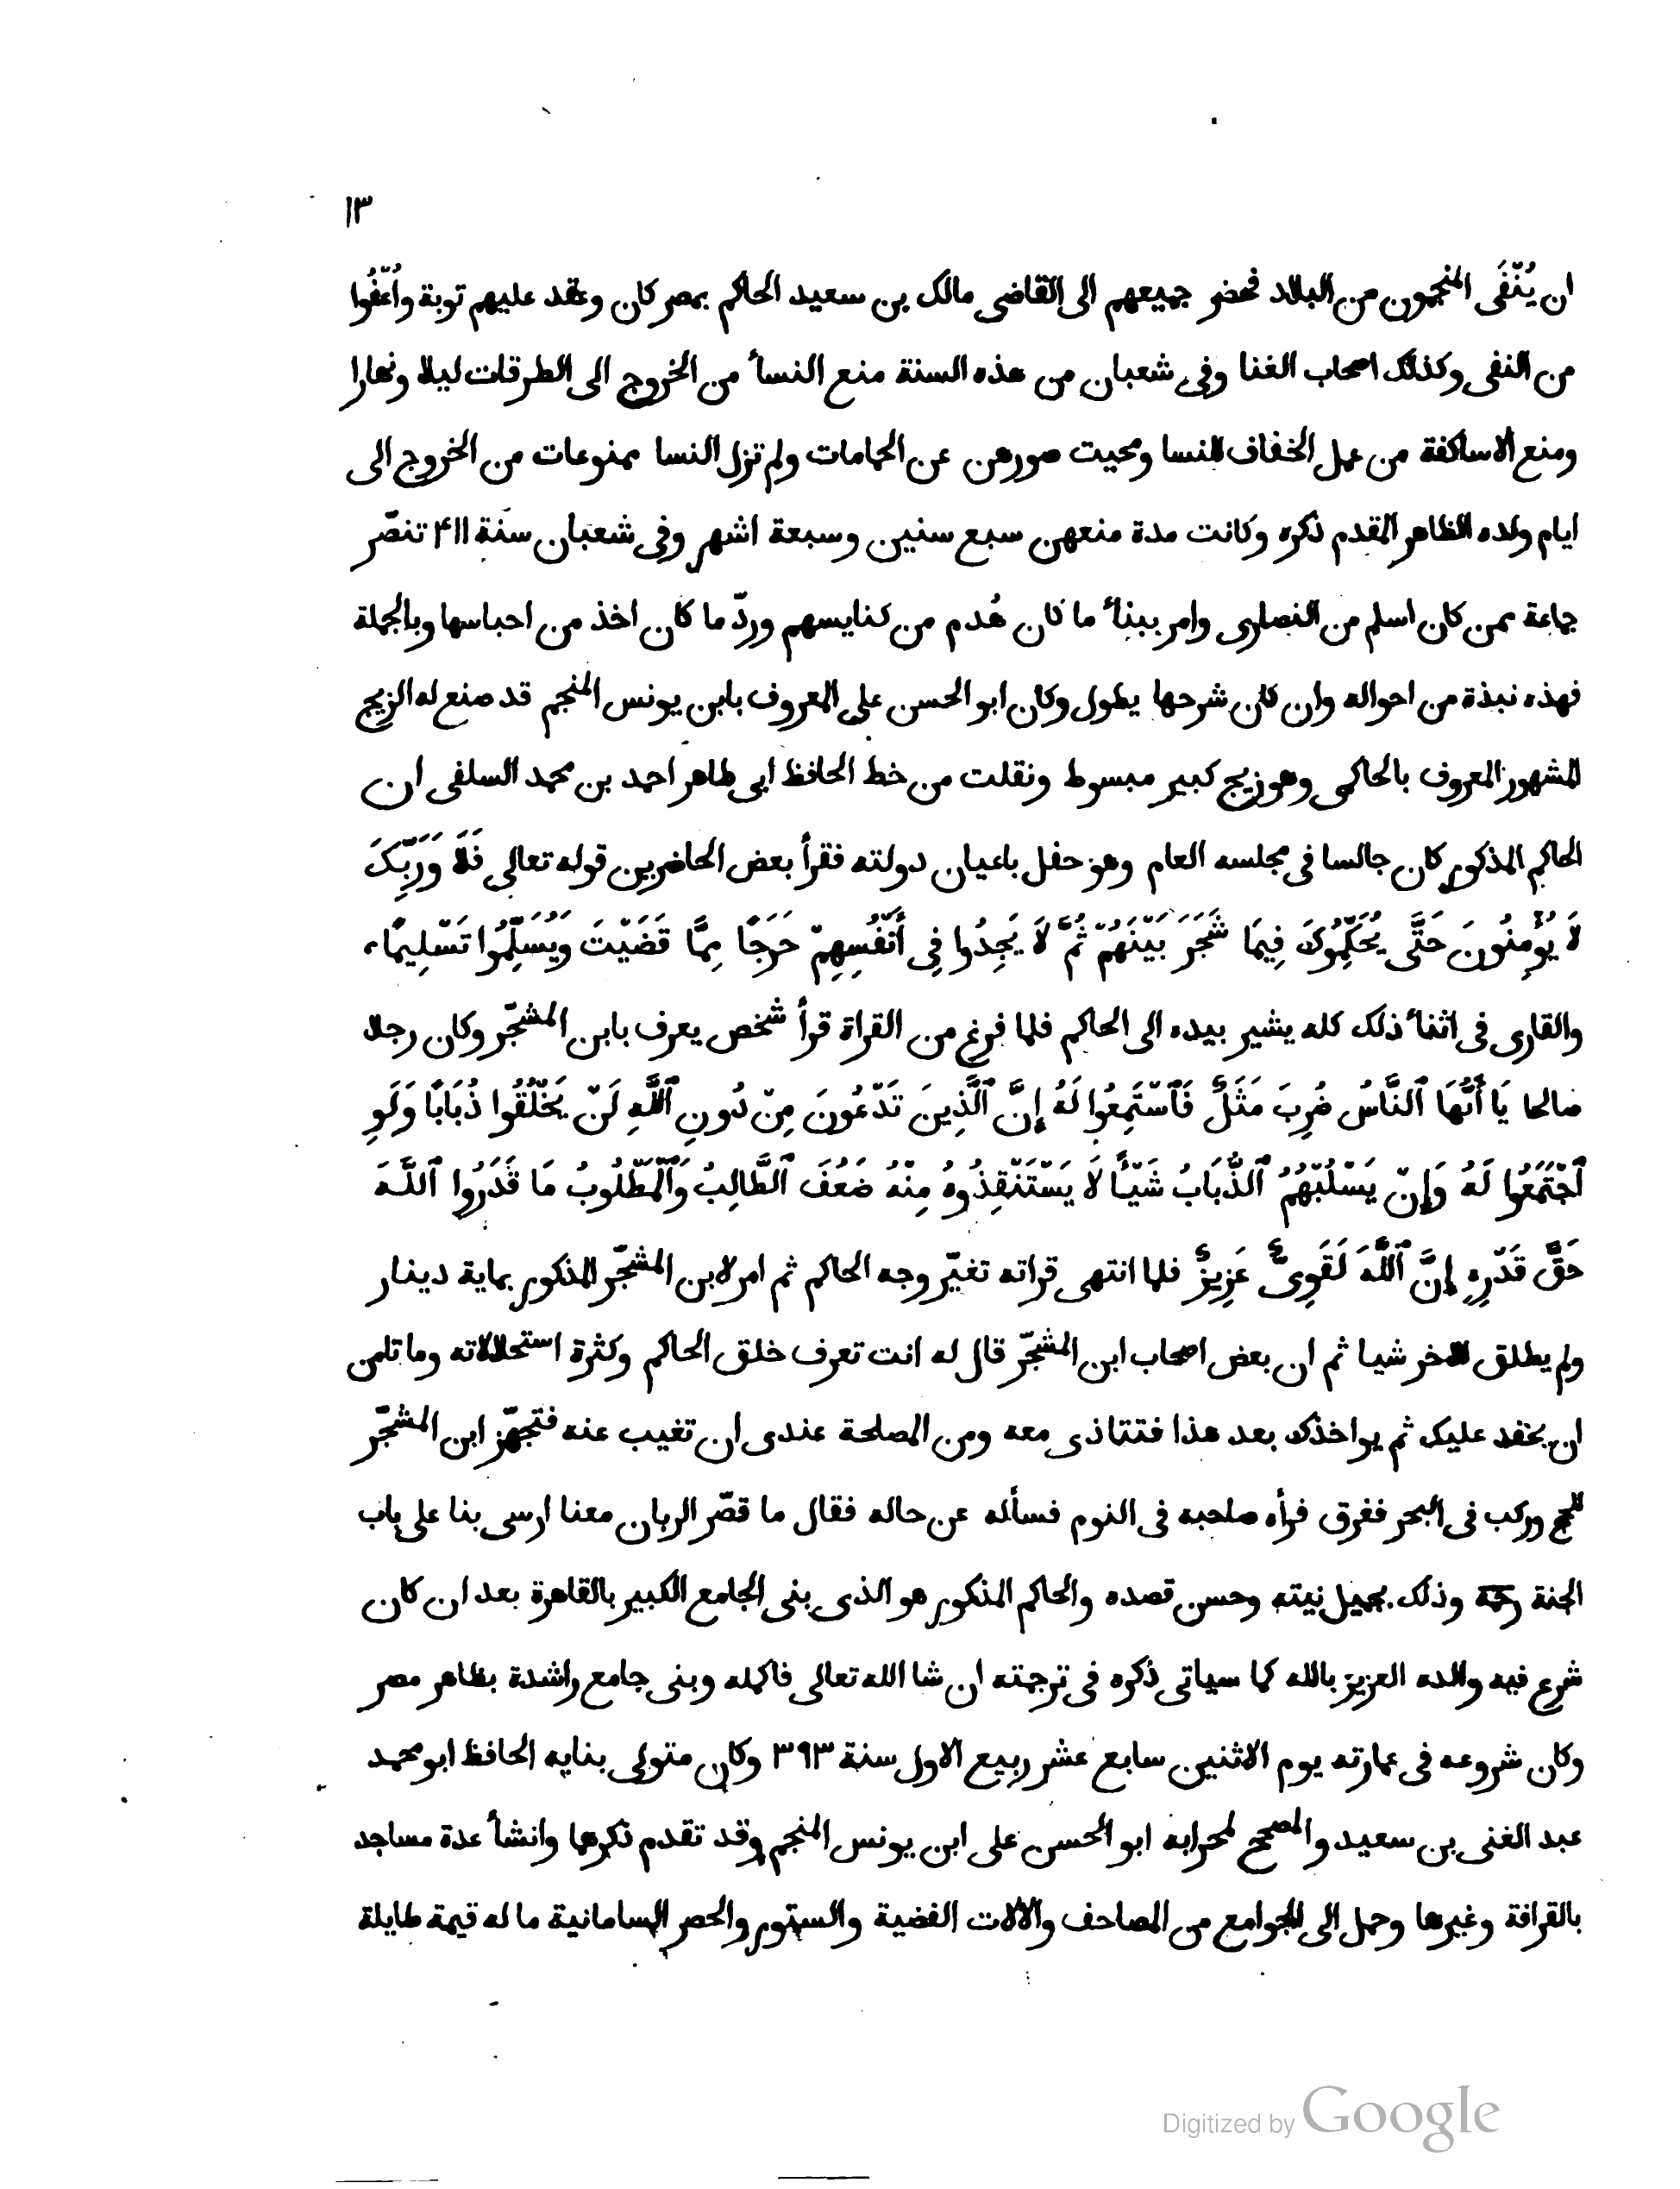 ١٣
ان يُنْفَى المنجمون من البلاد فحضر جميعهم الى القاضى مالك بن سعيد الحاكم بمصر كان وعقد عليهم توبة وأُعْفُوا
من النفى وكذلك اصحاب الغنا وفى شعبان من هذه السنة منع النسأ من الخروج الى الطرقات ليلا ونهارا
ومنع الاساكفة من عمل الخفاف للنسا ومحيت صورهن عن الحمامات ولم تزل النسا ممنوعات من الخروج الى
ايام ولده الظاهر المقدم ذكره وكانت مدة منعهن سبع سنين وسبعة اشهر وفى شعبان سنة ۴١١ تنصّر
جماعة ممن كان اسلم من النصارى وامر ببنأ ما كان هُدم من كنايسهم وردّ ما كان اخذ من احباسها وبالجملة
فهذه نبذة من احواله وان كان شرحها يطول وكان ابو الحسن على المعروف بابن يونس المنجم قد صنع له الزيج
المشهور المعروف بالحاكمى وهو زيج كبير مبسوط ونقلت من خط الحافظ ابى طاهر احمد بن محمد السلفى ان
الحاكم المذكور كان جالسا فى مجلسه العام وهو حفل باعيان دولته فقرأ بعض الحاضرين قوله تعالى فَلَا وَرَبِّكَ
لَا يُؤْمِنُونَ حَتَّى يُحَكِّمُوكَ فِيمَا شَجَرَ بَيْنَهُمْ ثُمَّ لَا يَجِدُوا فِى أَنْفُسِهِمْ حَرَجًا مِمَّا قَضَيْتَ وَيُسَلِّمُوا تَسْلِيمًا،
والقارى فى اثنأ ذلك كله يشير بيده الى الحاكم فلما فرغ من القراة قرأ شخص يعرف بابن المشجّر وكان رجلا
صالحا يَا أَيُّهَا ٱلنَّاسُ ضُرِبَ مَثَلٌ فَٱسْتَمِعُوا لَهُ إِنَّ ٱلَّذِينَ تَدْعُونَ مِنْ دُونِ ٱللَّهِ لَنْ يَخْلُقُوا ذُبَابًا وَلَوِ
ٱجْتَمَعُوا لَهُ وَإِنْ يَسْلُبْهُمُ ٱلذُّبَابُ شَيْأً لَا يَسْتَنْقِذُوهُ مِنْهُ ضَعُفَ ٱلطَّالِبُ وَٱلْمَطْلُوبُ مَا قَدَرُوا ٱللَّهَ
حَقَّ قَدْرِهِ إِنَّ ٱللَّهَ لَقَوِىٌّ عَزِيزٌ فلما انتهى قراته تغيّر وجه الحاكم ثم امر لابن المشجّر المذكور بماية دينار
ولم يطلق للاخر شيا ثم ان بعض اصحاب ابن المشجّر قال له انت تعرف خلق الحاكم وكثرة استحلالاته وما تامن
ان يحقد عليك ثم يواخذك بعد هذا فتتاذى معه ومن المصلحة عندى ان تغيب عنه فتجهّز ابن المشجّر
للحج وركب فى البحر فغرق فرأه صاحبه فى النوم فسأله عن حاله فقال ما قصّر الربان معنا ارسى بنا على باب
الجنة رحمه وذلك بجميل نيته وحسن قصده والحاكم المذكور هو الذى بنى الجامع الكبير بالقاهرة بعد ان كان
شرع فيه والده العزيز بالله كما سياتى ذكره فى ترجمته ان شا الله تعالى فاكمله وبنى جامع راشدة بظاهر مصر
وكان شروعه فى عمارته يوم الاثنين سابع عشر ربيع الاول سنة ٣٩٣ وكان متولى بنايه الحافظ ابو محمد
عبد الغنى بن سعيد والمصحح لمحرابه ابو الحسن على ابن يونس المنجم وقد تقدم ذكرهما وانشأ عدة مساجد
بالقرافة وغيرها وحمل الى الجوامع من المصاحف والالات الفضية والستور والحصر السامانية ما له قيمة طايلة
Digitized by Google